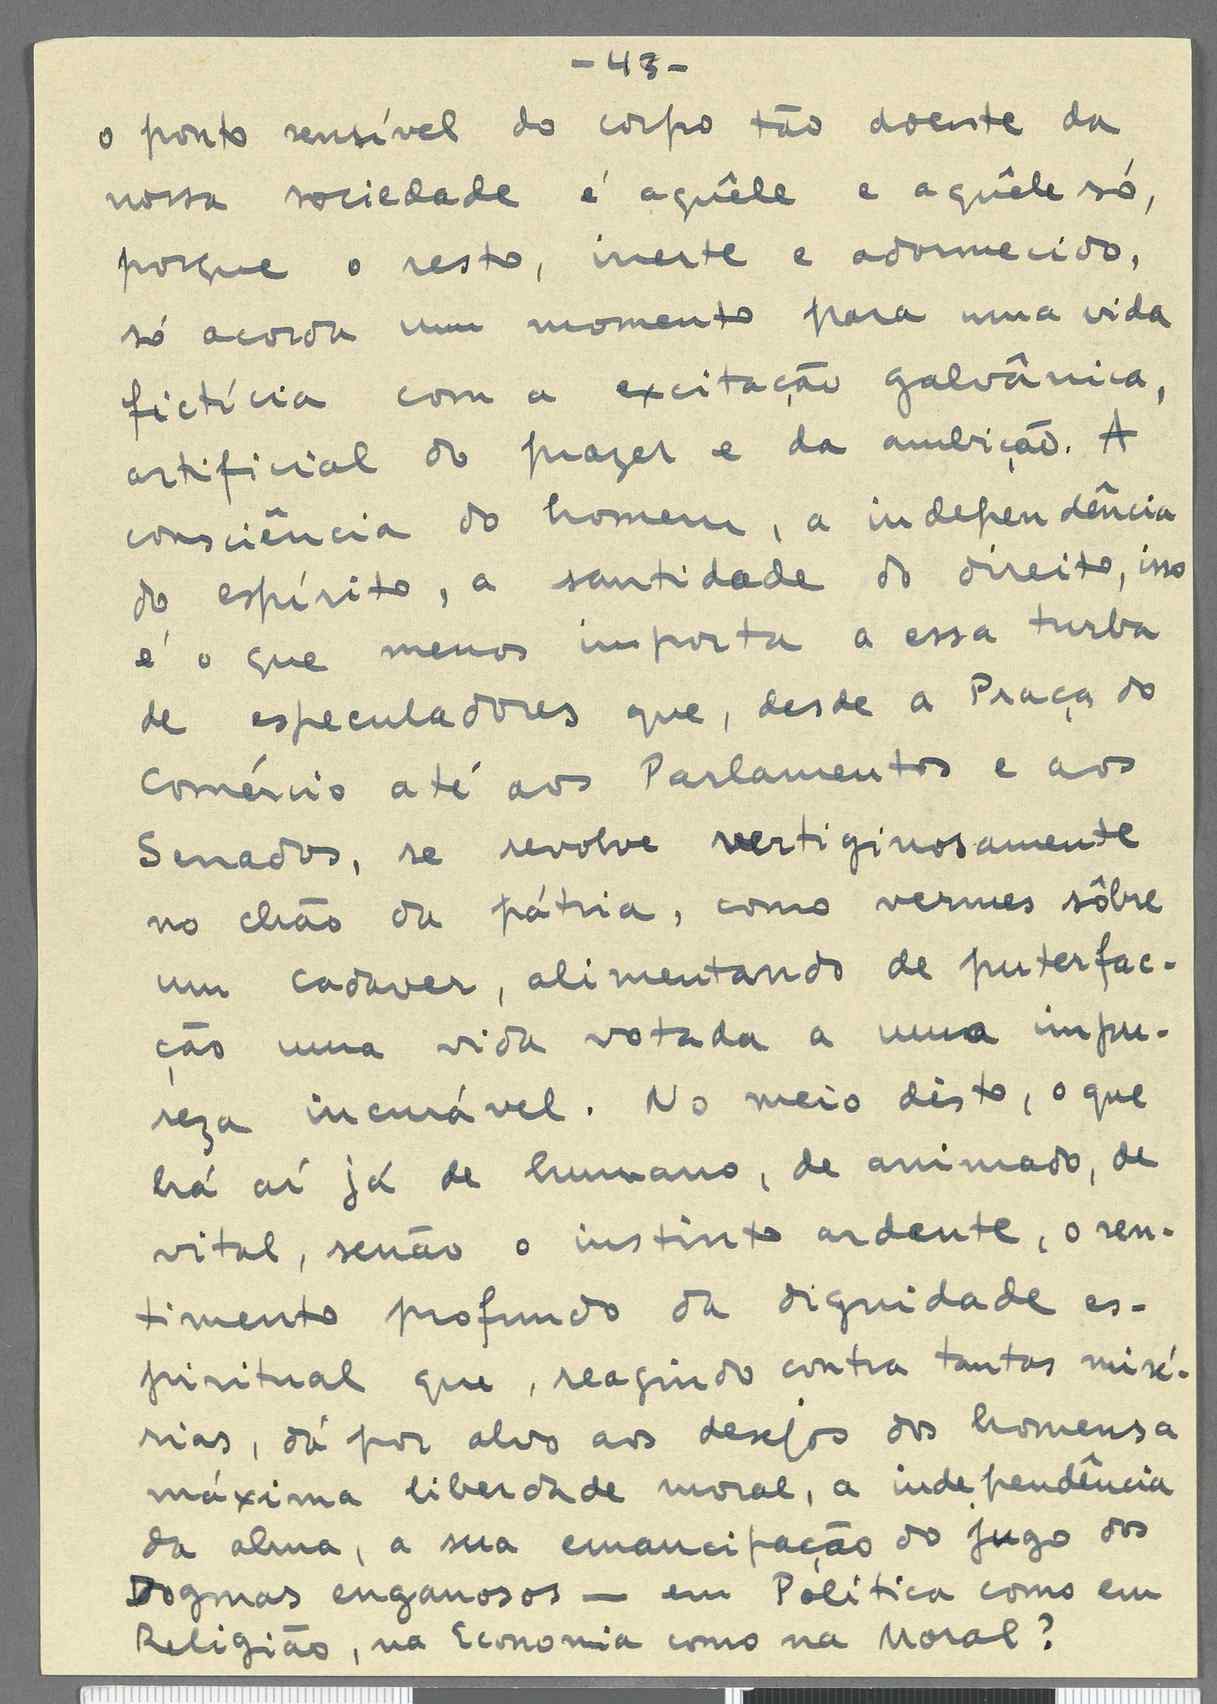 -43-
o ponto sensível do corpo tão doente da
nossa sociedade é aquêle e aquêle só,
porque o resto, inerte e adormecido,
só acorda um momento para uma vida
fictícia com a excitação galvânica,
artificial do prazer e da ambição. A
consciência do homem, a independência
do espírito, a santidade do direito, isso
é o que menos importa a essa turba
de especuladores que, desde a Praça do
Comércio até aos Parlamentos e aos
Senados, se revolve vertiginosamente
no chão da pátria, como vermes sôbre
um cadaver, alimentando de puterfac-
ção uma vida votada a uma impu-
reza incurável. No meio disto, o que
há aí já de humano, de animado, de
vital, senão o instinto ardente, o sen-
timento profundo da dignidade es-
piritual que, reagindo contra tantas misé-
rias, dá por alvo aos desejos dos homens a
máxima liberdade moral, a independência
da alma, a sua emancipação do jugo dos
Dogmas enganosos — em Política como em
Religião, na Economia como na Moral?